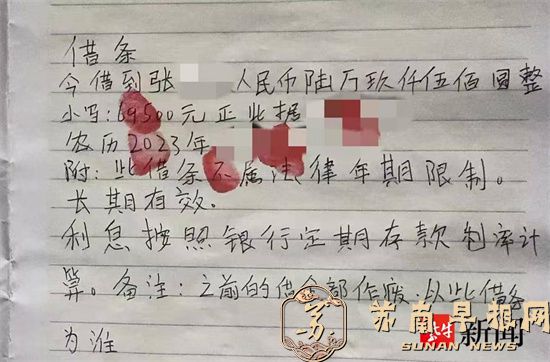 借条
今借到张 人民币陆万玖仟伍佰圆整
小写:69500元正此据
农历2023年
附:此借条不属法律年期限制。
长期有效。
利息按照银行定期存款利率计
算。备注:之前的借全部作废.以此借条
为准
苏南早报网
SUNAN NEWS
紫牛新闻